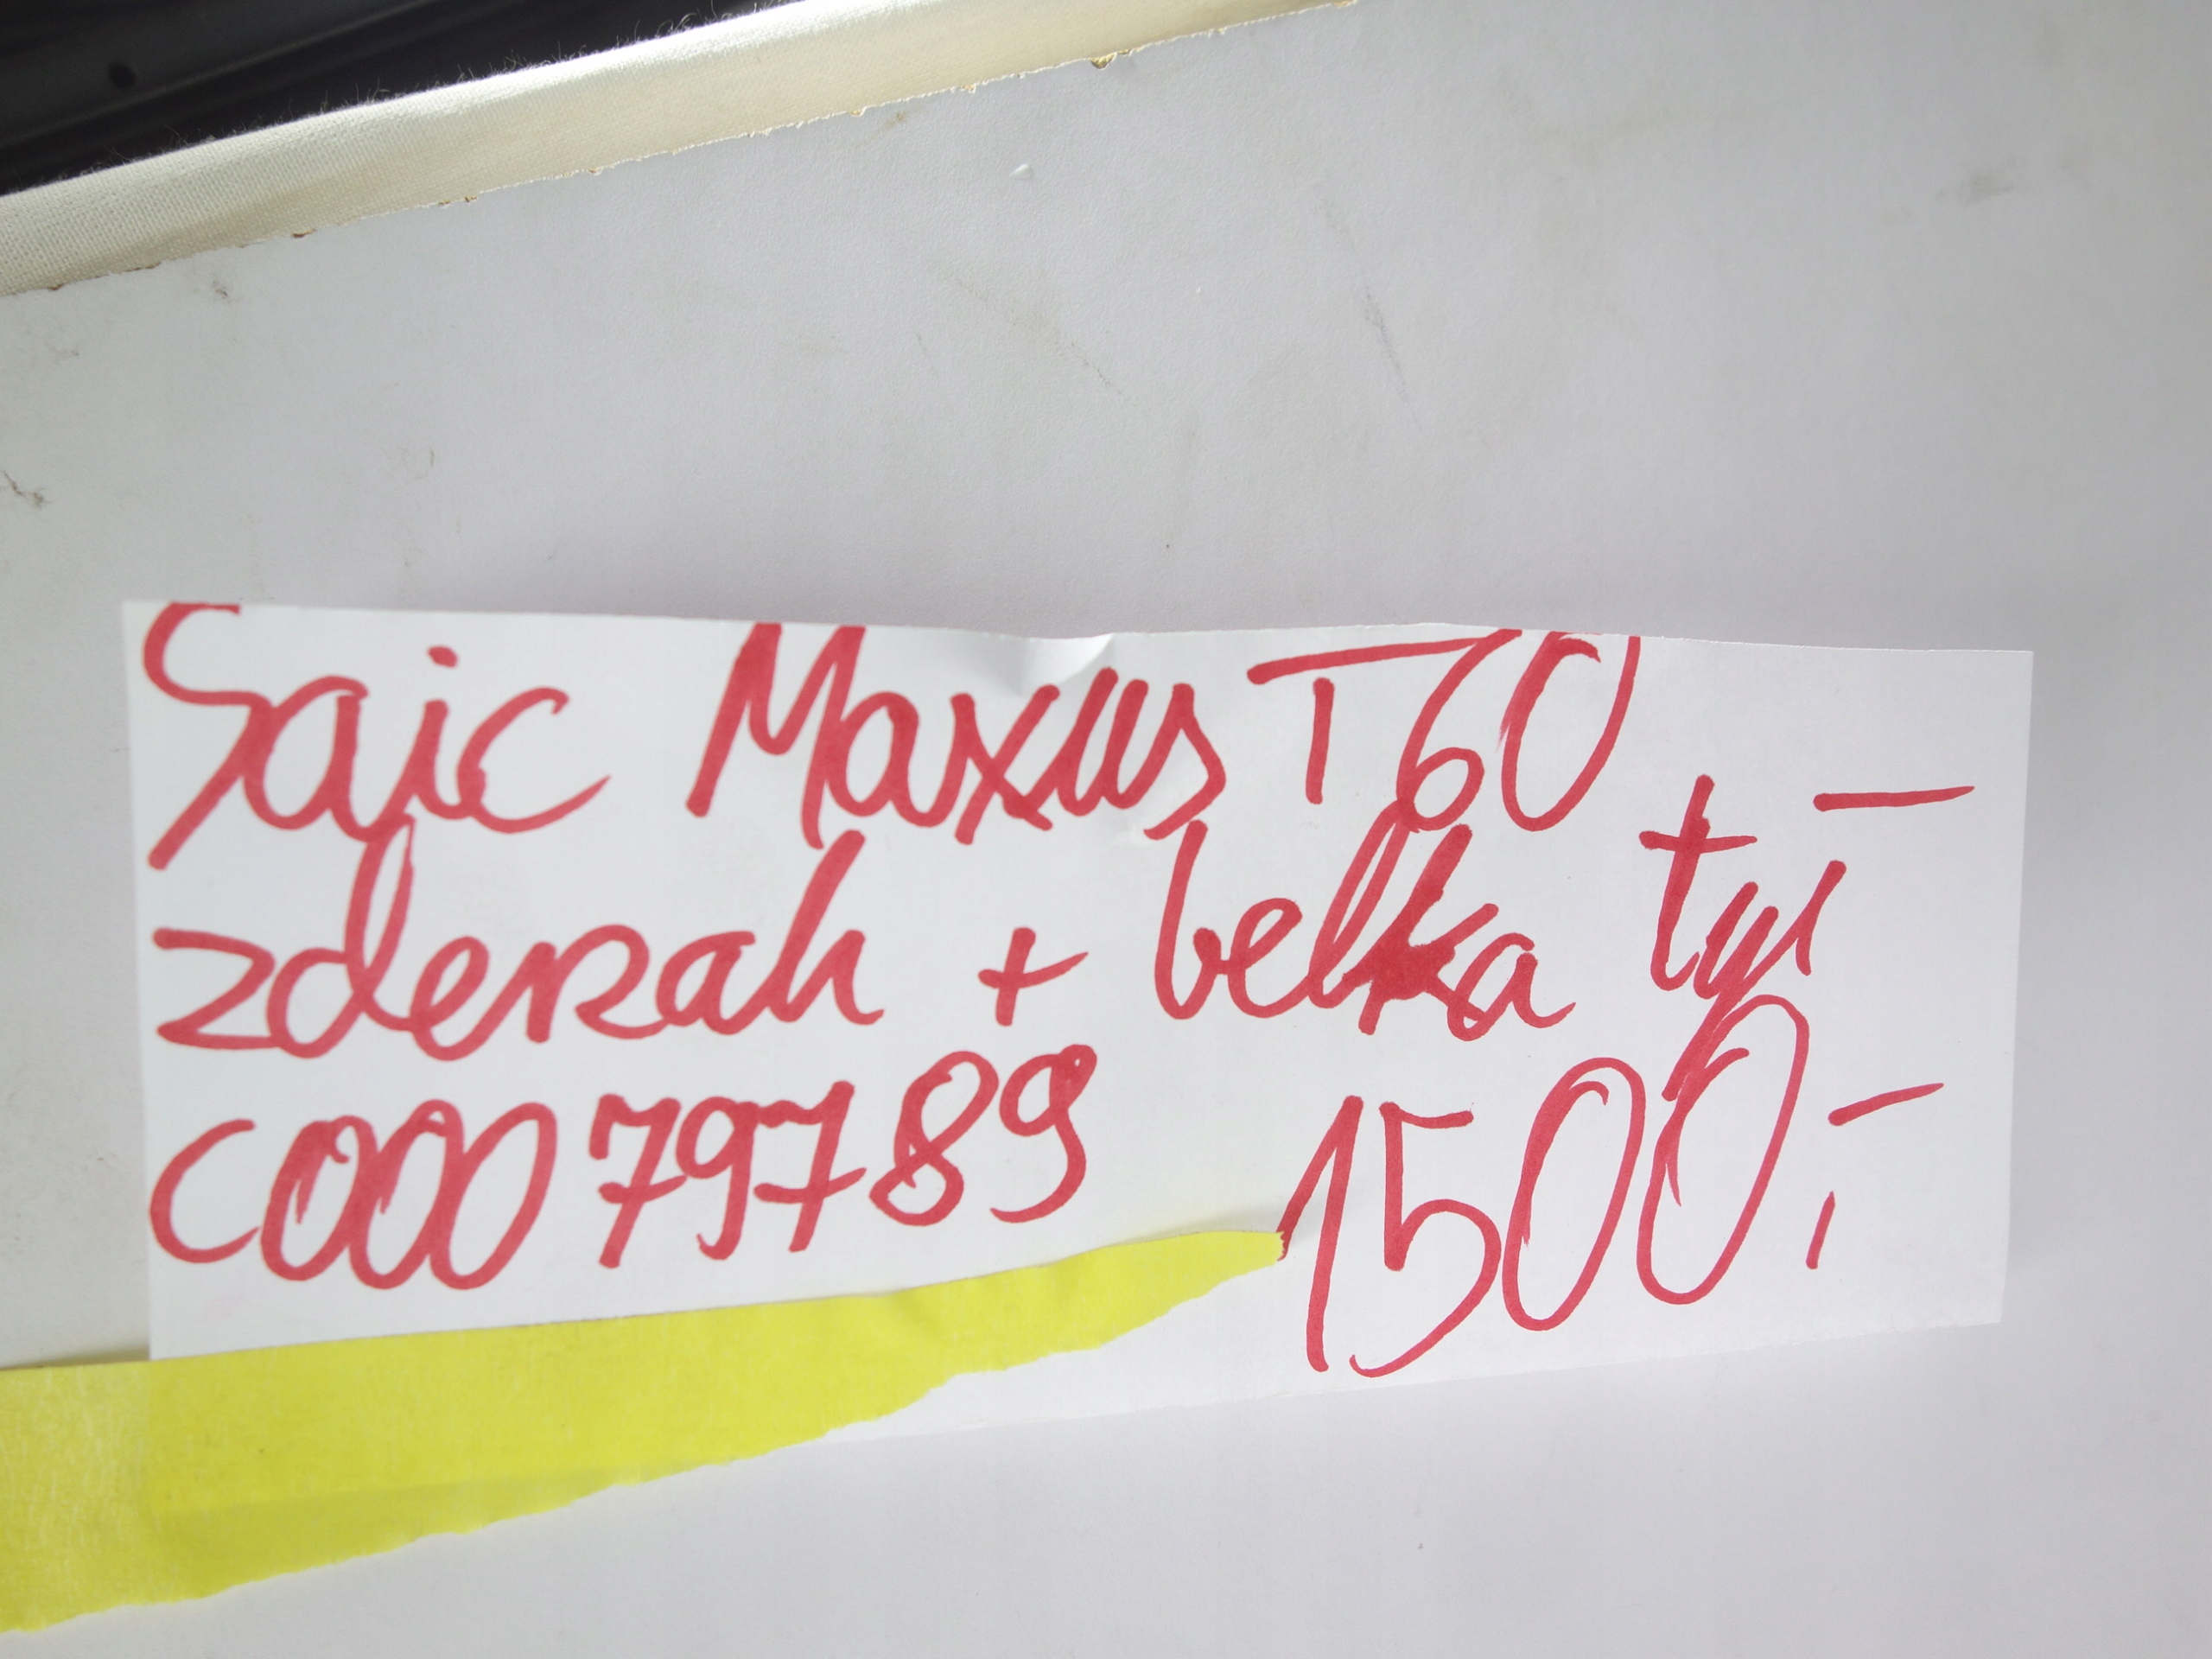 Saic Maxus T60
zderzak + belka tył
C00079789
1500,-